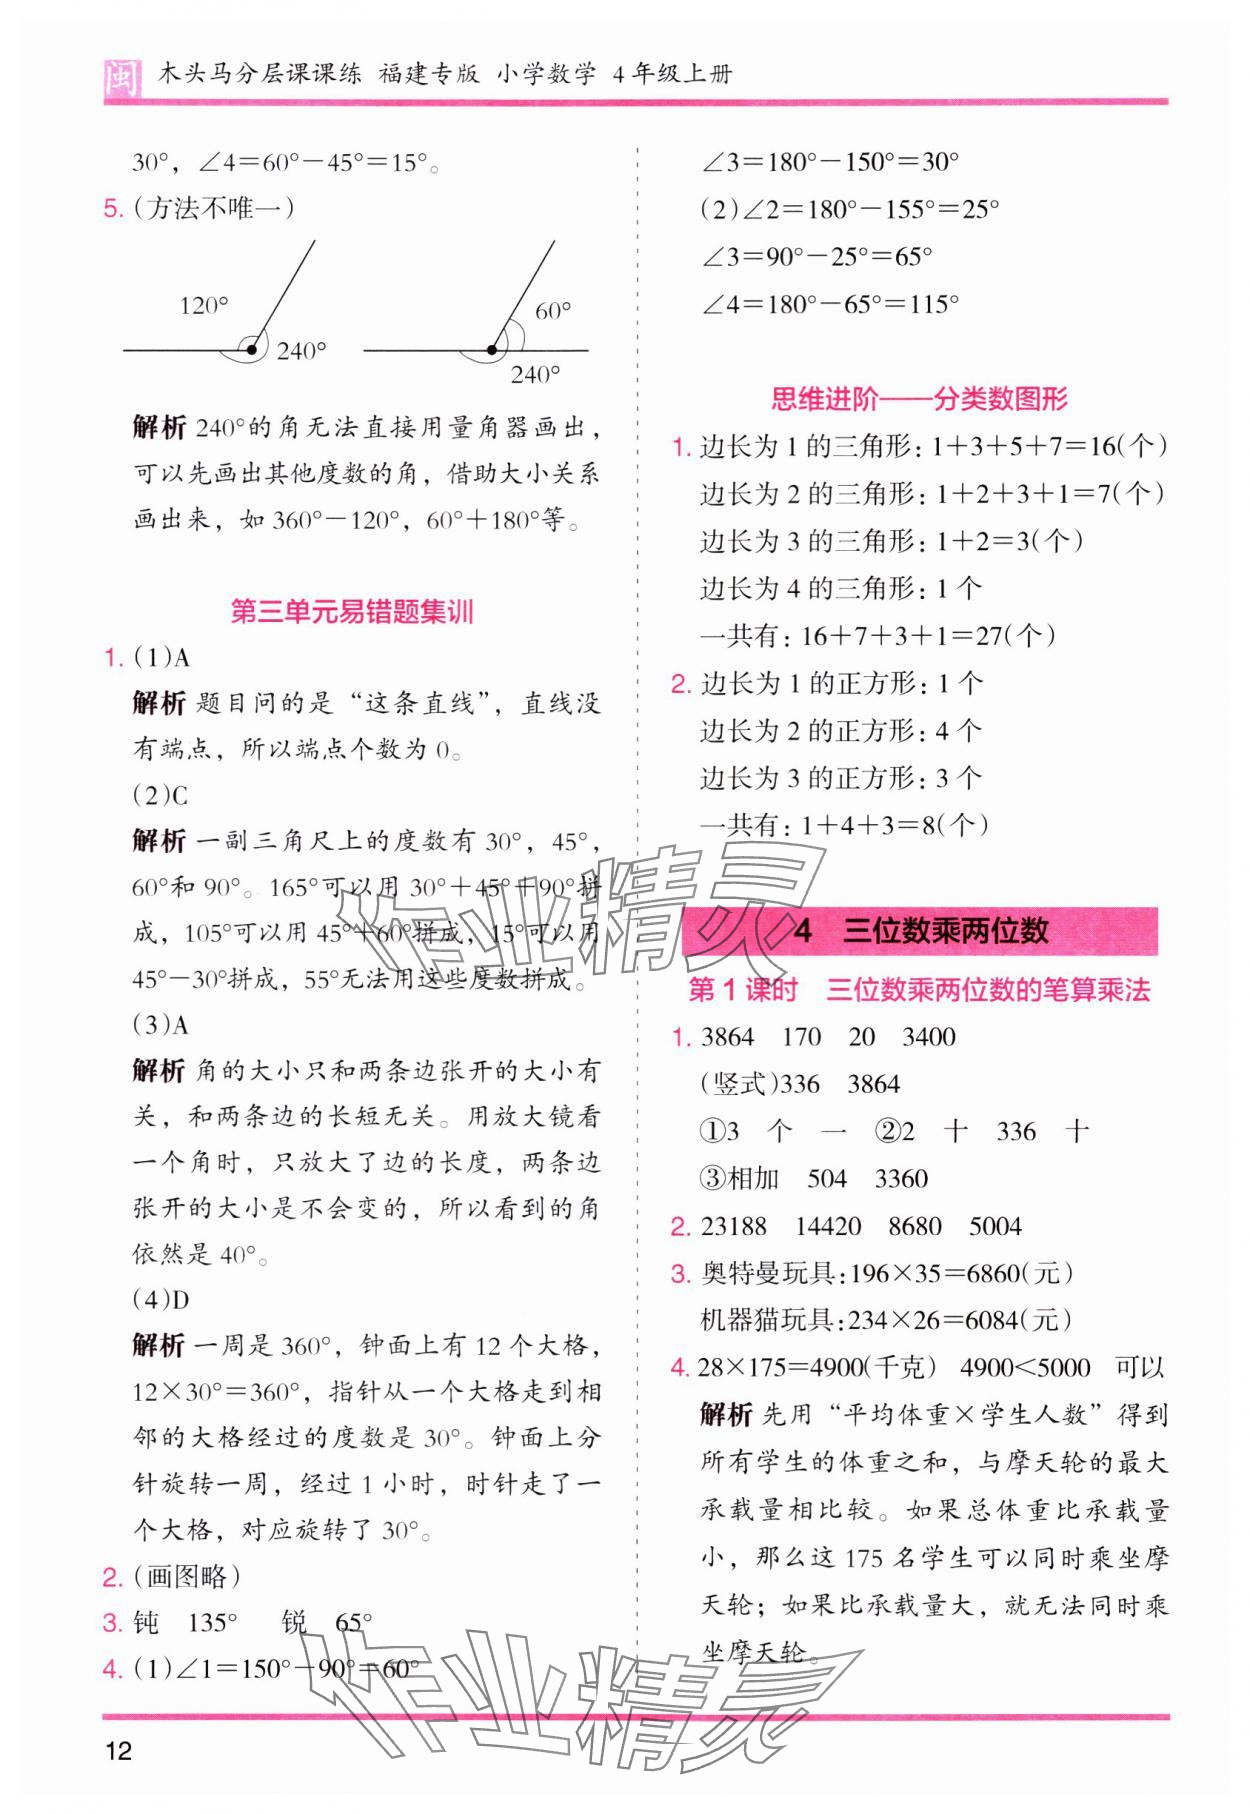 闽 木头马分层课课练 福建专版 小学数学 4年级上册
30°，∠4=60°-45°=15°。
5.（方法不唯一）
120°
240°
60°
240°
解析 240°的角无法直接用量角器画出，
可以先画出其他度数的角，借助大小关系
画出来，如 360°-120°，60°+180°等。
第三单元易错题集训
1.(1)A
解析 题目问的是“这条直线”，直线没
有端点，所以端点个数为 0。
(2)C
解析 一副三角尺上的度数有 30°，45°，
60°和 90°。165°可以用 30°+45°+90°拼
成，105°可以用 45°+60°拼成，15°可以用
45°-30°拼成，55°无法用这些度数拼成。
(3)A
解析 角的大小只和两条边张开的大小有
关，和两条边的长短无关。用放大镜看
一个角时，只放大了边的长度，两条边
张开的大小是不会变的，所以看到的角
依然是 40°。
(4)D
解析 一周是 360°，钟面上有 12 个大格，
12×30°=360°，指针从一个大格走到相
邻的大格经过的度数是 30°。钟面上分
针旋转一周，经过 1 小时，时针走了一
个大格，对应旋转了 30°。
2.（画图略）
3. 钝 135° 锐 65°
4.(1)∠1=150°-90°=60°
∠3=180°-150°=30°
(2)∠2=180°-155°=25°
∠3=90°-25°=65°
∠4=180°-65°=115°
思维进阶——分类数图形
1. 边长为 1 的三角形：1+3+5+7=16(个)
边长为 2 的三角形：1+2+3+1=7(个)
边长为 3 的三角形：1+2=3(个)
边长为 4 的三角形：1 个
一共有：16+7+3+1=27(个)
2. 边长为 1 的正方形：1 个
边长为 2 的正方形：4 个
边长为 3 的正方形：3 个
一共有：1+4+3=8(个)
4 三位数乘两位数
第 1 课时 三位数乘两位数的笔算乘法
1. 3864 170 20 3400
(竖式)336 3864
①3 个 一 ②2 十 336 十
③相加 504 3360
2. 23188 14420 8680 5004
3. 奥特曼玩具：196×35=6860(元)
机器猫玩具：234×26=6084(元)
4. 28×175=4900(千克) 4900<5000 可以
解析 先用“平均体重×学生人数”得到
所有学生的体重之和，与摩天轮的最大
承载量相比较。如果总体重比承载量
小，那么这 175 名学生可以同时乘坐摩
天轮；如果比承载量大，就无法同时乘
坐摩天轮。
作业精灵
作业精灵
12